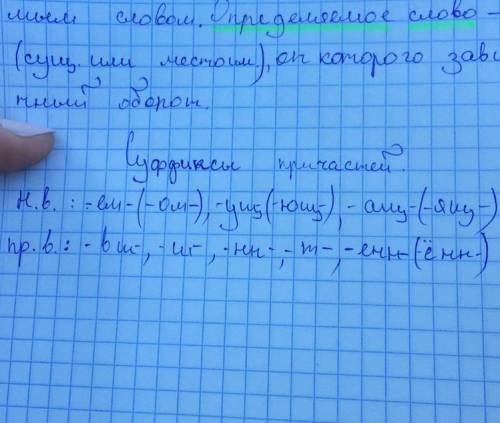 мым словом. Определяемое слово -
(сущ. или местоим.), от которого зави
тный оборот.
Суффиксы причастей.
н.в. : -ем-(-ом-), -ущ(-ющ-), -ащ-(-ящ-)
пр.в.: -вш-, -ш-, -нн-, -т-, -енн-(ённ-)